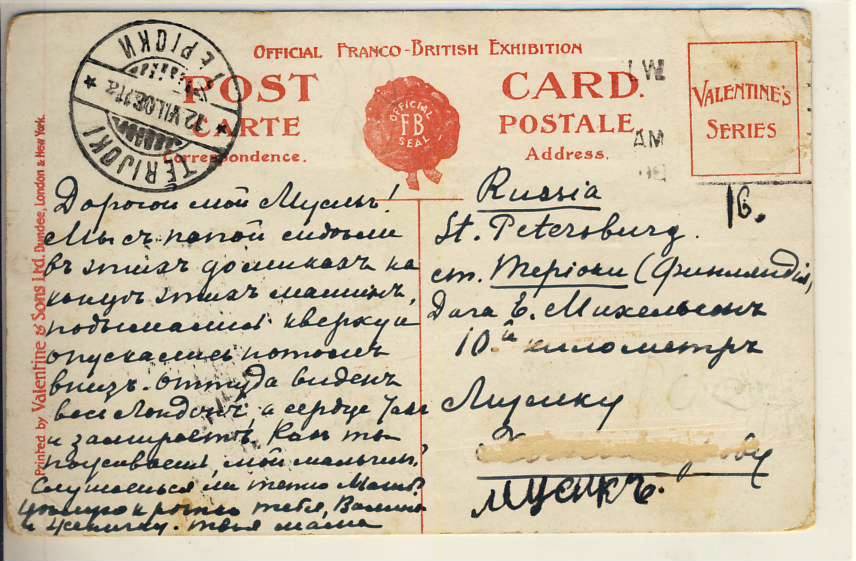 OFFICIAL FRANCO-BRITISH EXHIBITION
POST CARD.
CARTE POSTALE
Correspondence. Address.
OFFICIAL
FB
SEAL
VALENTINE'S
SERIES
ТЕРІОКИ
12.VII.08
TERIJOKI
AM
Printed by Valentine & Sons Ltd. Dundee, London & New York.
16.
Дорогой мой Мусинъ!
Мы съ папой сидѣли
въ этихъ домикахъ на
концѣ этихъ машинъ,
подымались кверху и
опускались потомъ
внизъ. Оттуда виденъ
весь Лондонъ, а сердце
и замираетъ. Какъ ты
поживаешь, мой мальчикъ?
Слушаешься ли тетю
тебя,
и твоя мама
Russia
St. Petersburg.
ст. Теріоки (Финляндія)
Дача Е. Михельсонъ
10й километръ